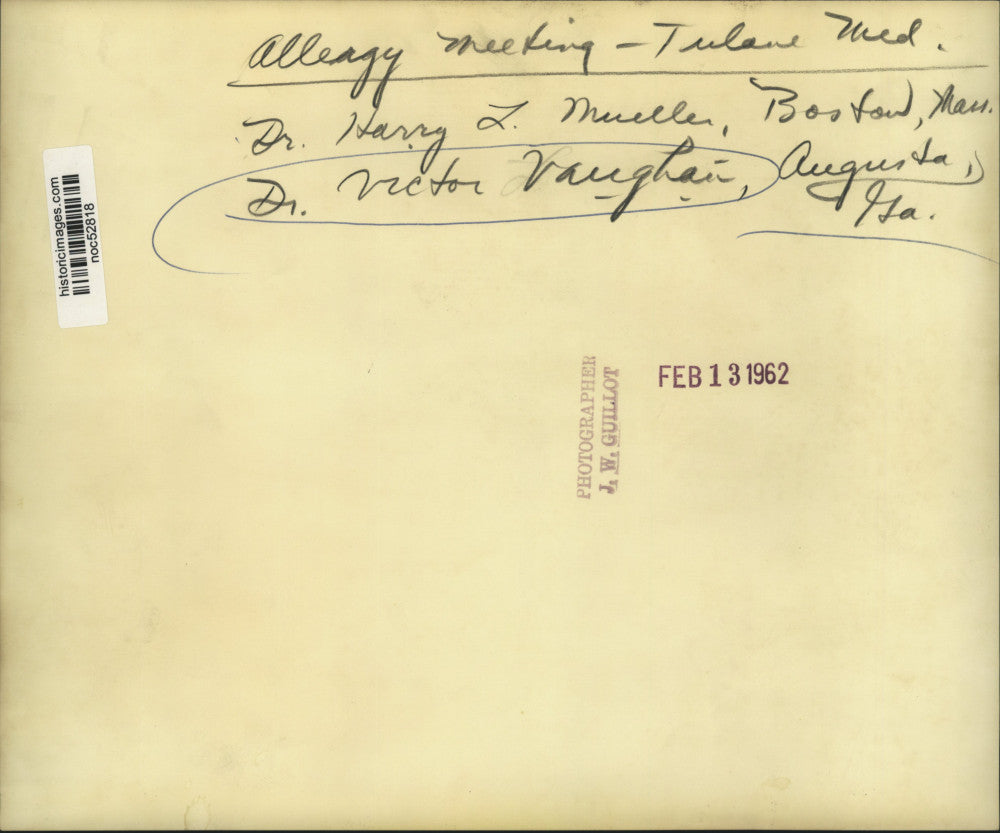 Allergy meeting - Tulane Med.
Dr. Harry L. Mueller, Boston, Mass.
Dr. Victor Vaughan, Augusta,
Ga.
historicimages.com
noc52818
PHOTOGRAPHER
J. W. GUILLOT
FEB 13 1962